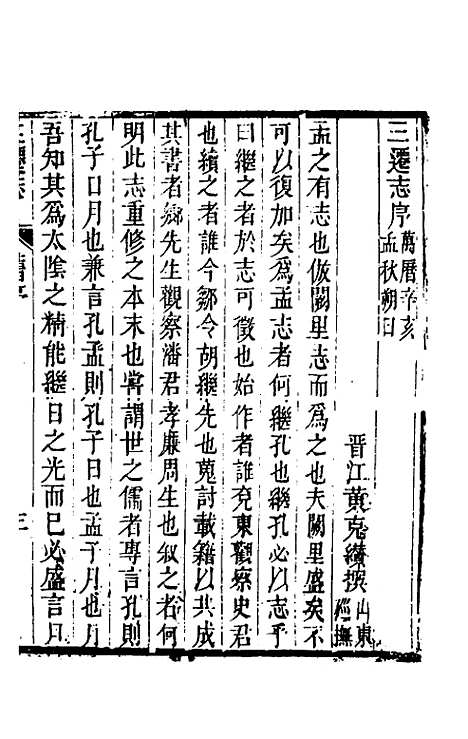 三遷志序 萬曆辛亥孟秋朔日
晋江黃克纘撰 山東巡撫
孟之有志也倣闕里志而爲之也夫闕里盛矣不
可以復加矣爲孟志者何繼孔也繼孔必以志乎
曰繼之者於志可徵也始作者誰兖東觀察史君
也續之者誰今鄒令胡繼先也蒐討載籍以共成
其書者鄉先生觀察潘君孝廉周生也叙之者何
明此志重修之本末也嘗謂世之儒者專言孔則
孔子日月也兼言孔孟則孔子日也孟子月也月
吾知其爲太陰之精能繼日之光而已必盛言月
三遷志
三